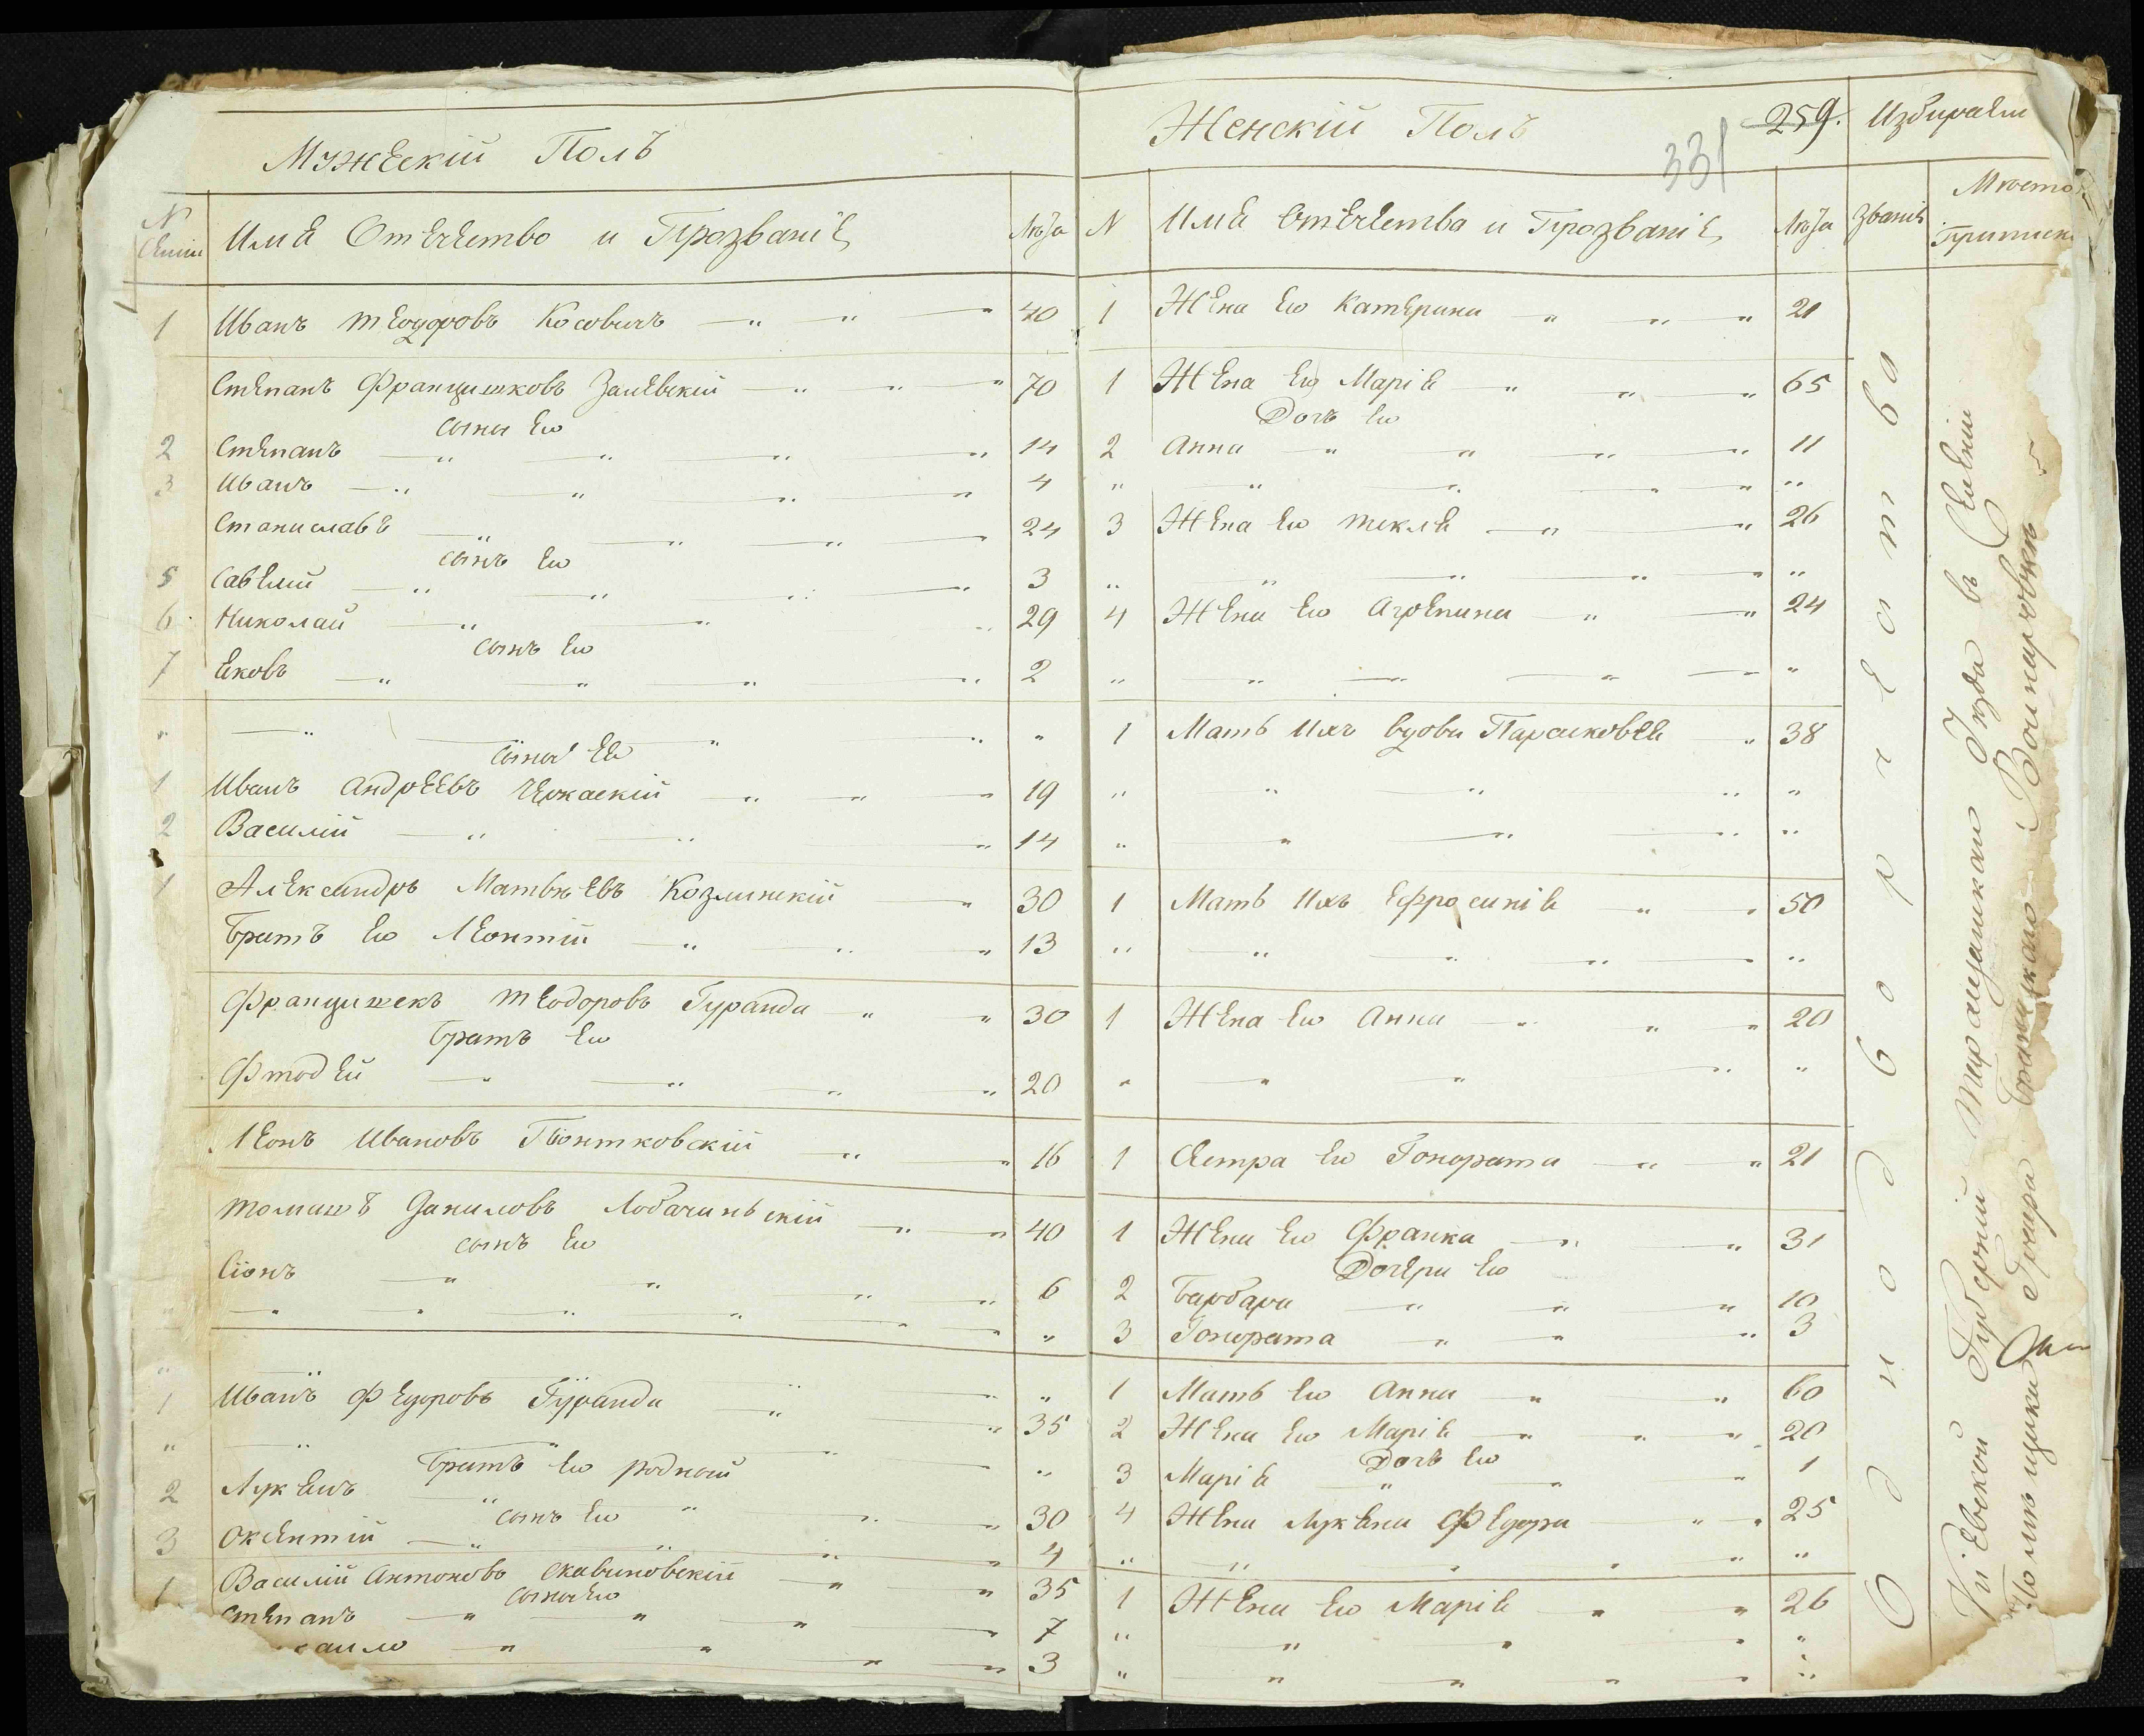 Мужеский Полъ
N
Имя Отечество и Прозвание
Лѣта
1 Иванъ теодоровъ Косовичъ — " " " 40
Степанъ Францишковъ Залевский — " " " 70
сыны Его
2 Степанъ — " " " " 14
3 Иванъ — " " " " 4
Станиславъ — " " " " 24
сынъ Его
5 Савелий — " " " " 3
6 Николай — " " " 29
сынъ Его
7 Яковъ — " " " " 2
" — " " " "
сыны Ея
1 Иванъ Андреевъ Черкаский — " " " 19
2 Василий — " " " 14
1 Александръ Матвѣевъ Козлинский — " 30
братъ Его Леонтий — " " " 13
Францишекъ теодоровъ Гуранда — " " 30
братъ Его
Фтодей — " " " " 20
Леонъ Ивановъ Піонтковский " " 16
томашъ Даниловъ Лобачинский — " " 40
сынъ Его
Сіонъ — " " " " 6
" — " " " " " "
" — " " " "
1 Иванъ Федоровъ Гуранда — " " 35
" — " " " "
братъ Его родной
2 Лукьянъ — " " " " 30
сынъ Его
3 Оксентий — " " " " 4
1 Василий Антоновъ Скавиновский — " " 35
сыны Его
Степанъ — " " " 7
" " " " 3
Женский Полъ
259.
331
N
Имя Отечество и Прозвание
Лѣта
1 Жена Его Катерина — " " " 21
1 Жена Его Марія — " " " 65
Дочь Его
2 Анна — " " " " 11
" — " " " " "
3 Жена Его текля — " " 26
" — " " " " "
4 Жена Его Агрепина — " " 24
" — " " " "
1 Мать Ихъ вдова Парасковея — " 38
" — " " " "
" — " " " "
1 Мать Ихъ Ефросинія — " " 50
" — " " " " "
1 Жена Его Анна — " " " 20
" — " " " "
1 Сестра Его Гонората — " " 21
1 Жена Его Франка — " " 31
Дочери Его
2 Барбара — " " " 10
3 Гонората — " " " 3
1 Мать Его Анна — " " 60
2 Жена Его Марія — " " " 20
Дочь Его
3 Марія — " " " 1
4 Жена Лукьяна Федора " " 25
" — " " " " "
1 Жена Его Марія — " " 26
" — " " " "
" — " " " " "
Избирали
Званія
Мѣсто
Приписки
Однодворчества
Киевской Губерний Таращанскаго уѣзда в Селении
Помѣщика Графа